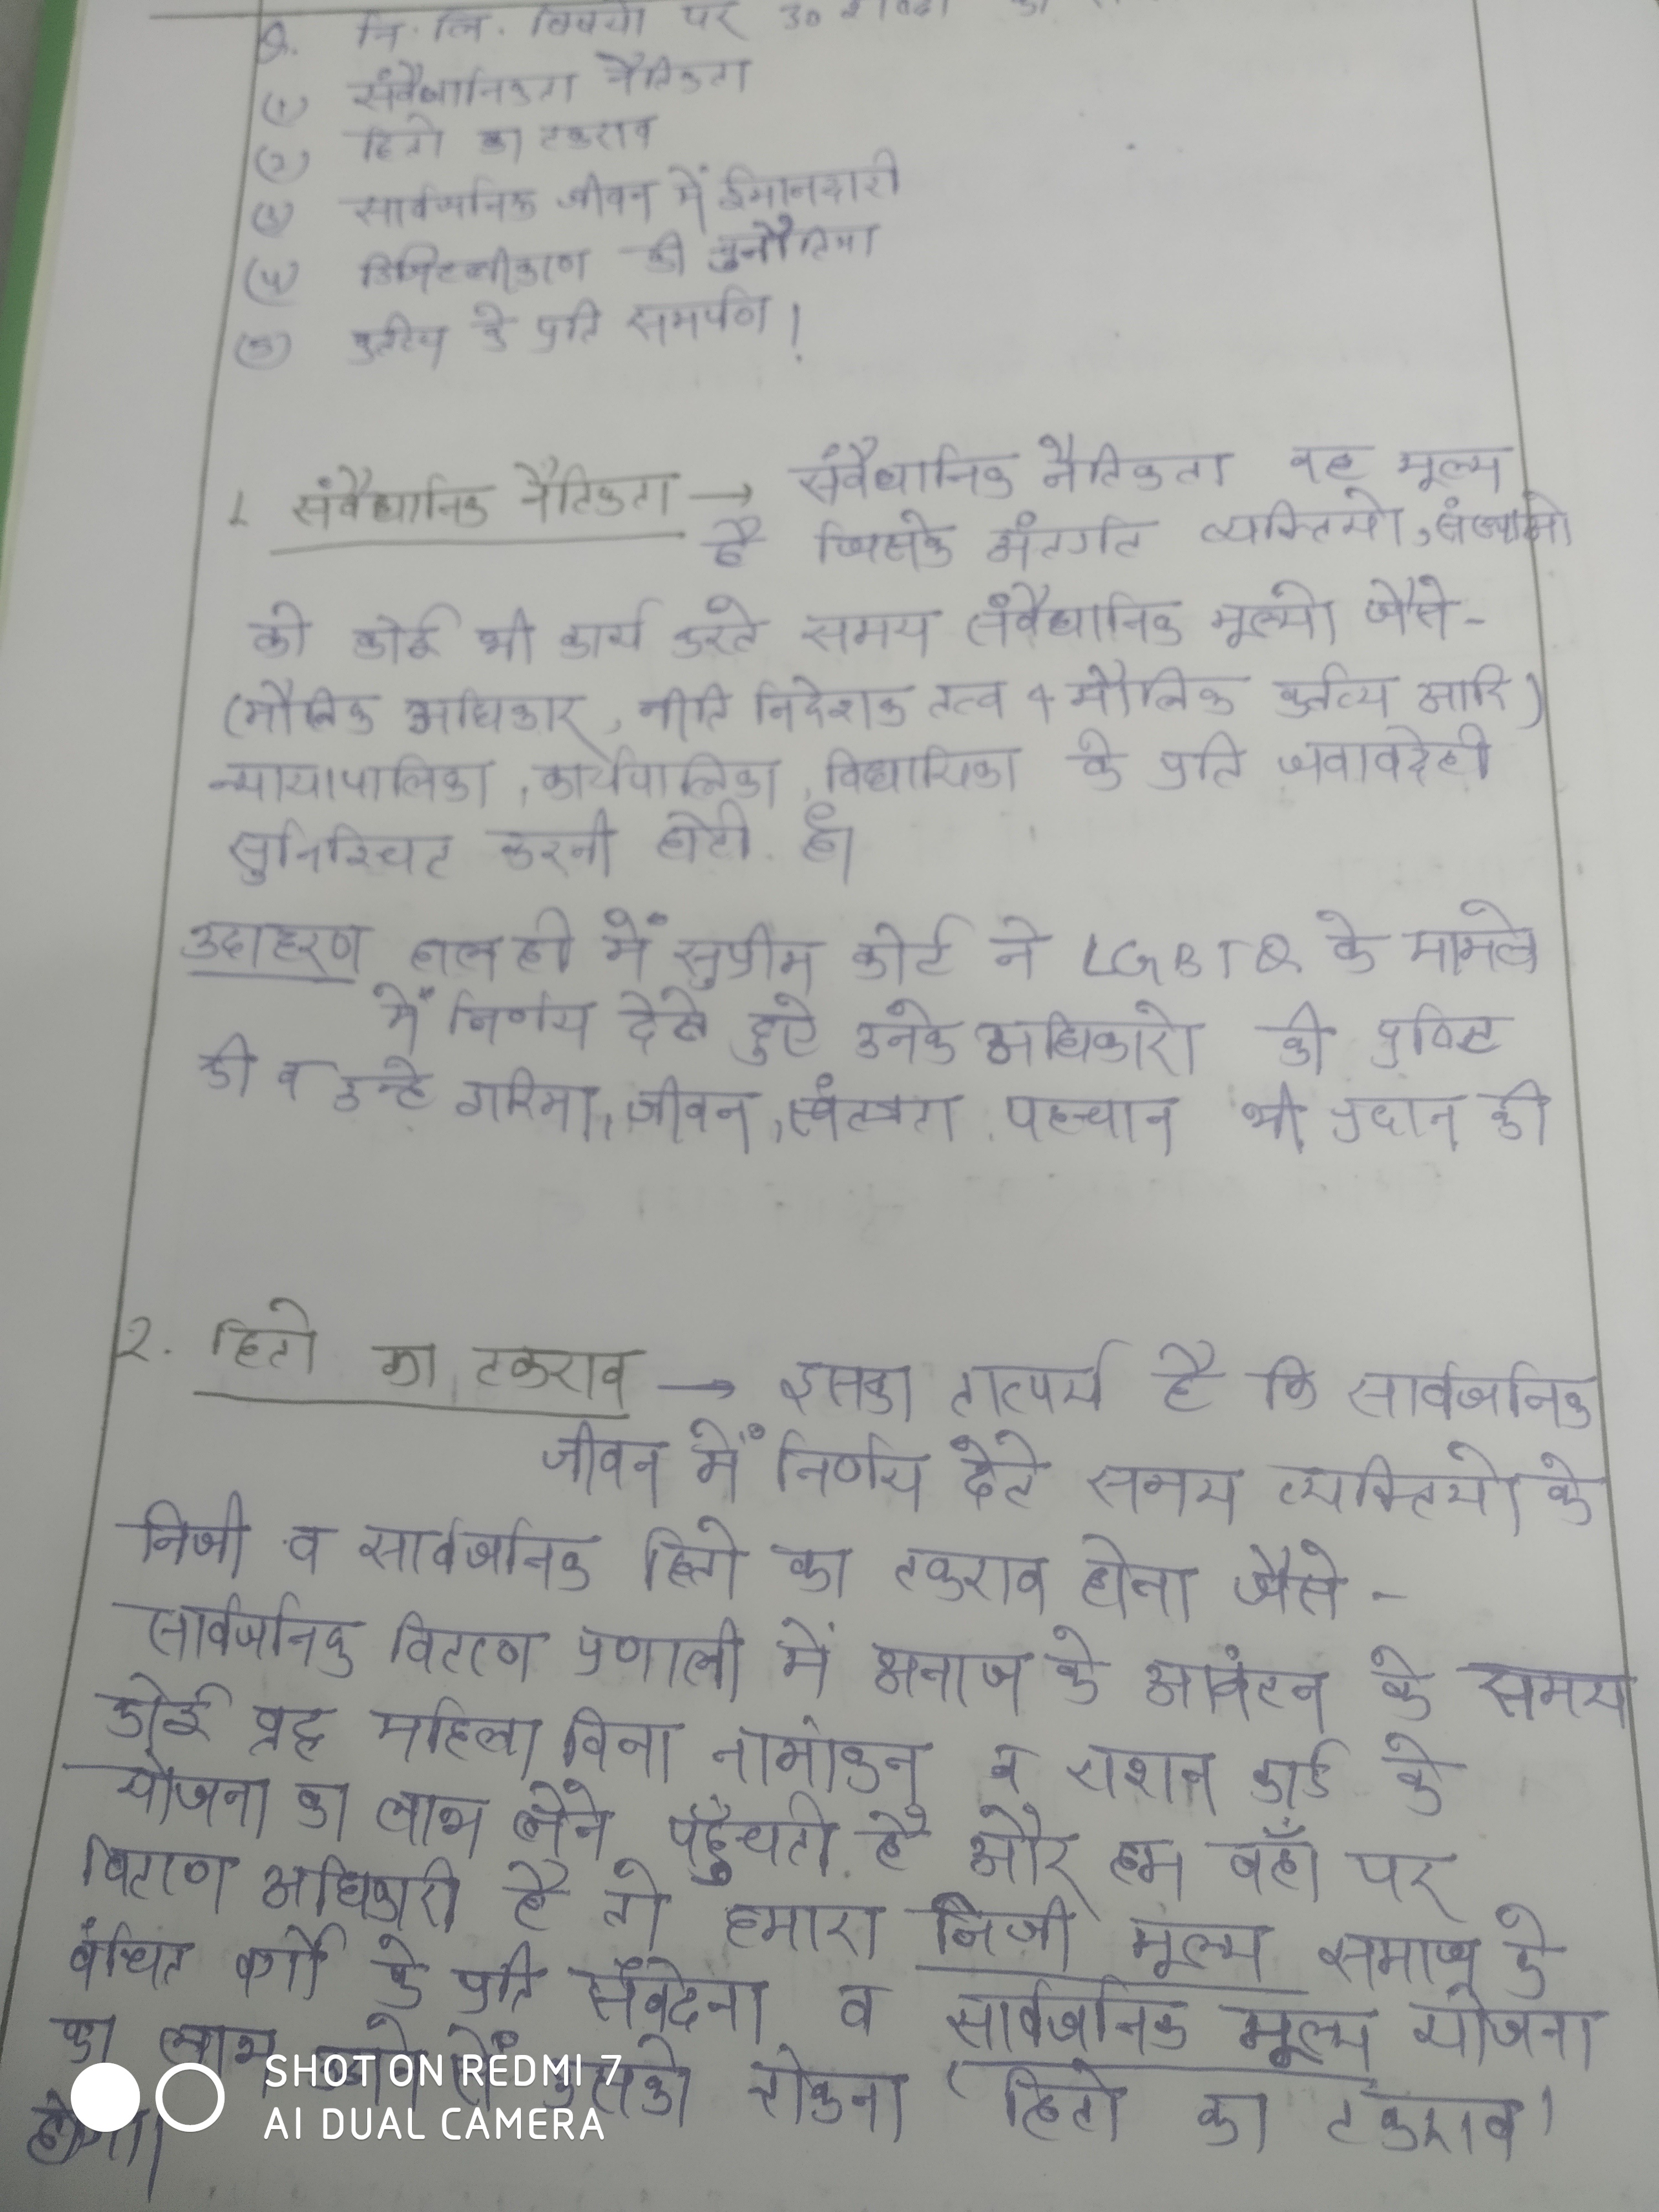 Q. नि. लि. विषयो पर 30
(1) संवैधानिकता नैतिकता
(2) हितो का टकराव
(3) सार्वजनिक जीवन में ईमानदारी
(4) डिजिटलीकरण की चुनौतिया
(5) कर्तव्य के प्रति समर्पण।
1. संवैधानिक नैतिकता → संवैधानिक नैतिकता वह मूल्य
है जिसके अंतर्गत व्यक्तियो, संस्थाओ
को कोई भी कार्य करते समय संवैधानिक मूल्यो जैसे-
(मौलिक अधिकार, नीति निदेशक तत्व व मौलिक कर्तव्य आदि)
न्यायापालिका, कार्यपालिका, विधायिका के प्रति जवाबदेही
सुनिश्चित करनी होती है।
उदाहरण हाल ही में सुप्रीम कोर्ट ने LGBTQ के मामले
में निर्णय देते हुऐ उनके अधिकारो की पुष्टि
की व उन्हे गरिमा, जीवन, स्वंतत्रता पहचान भी प्रदान की
2. हितो का टकराव → इसका तात्पर्य है कि सार्वजनिक
जीवन में निर्णय देते समय व्यक्तियो के
निजी व सार्वजनिक हितो का टकराव होना जैसे -
सार्वजनिक वितरण प्रणाली में अनाज के आवंटन के समय
कोई वृद्ध महिला बिना नामांकन व राशन कार्ड के
योजना का लाभ लेने पहुँचती है और हम वहाँ पर
वितरण अधिकारी है तो हमारा निजी मूल्य समाज के
वंचित वर्गो के प्रति संवेदना व सार्वजनिक मूल्य योजना
का लाभ उसको रोकना 'हितो का टकराव'
होगा।
SHOT ON REDMI 7
AI DUAL CAMERA